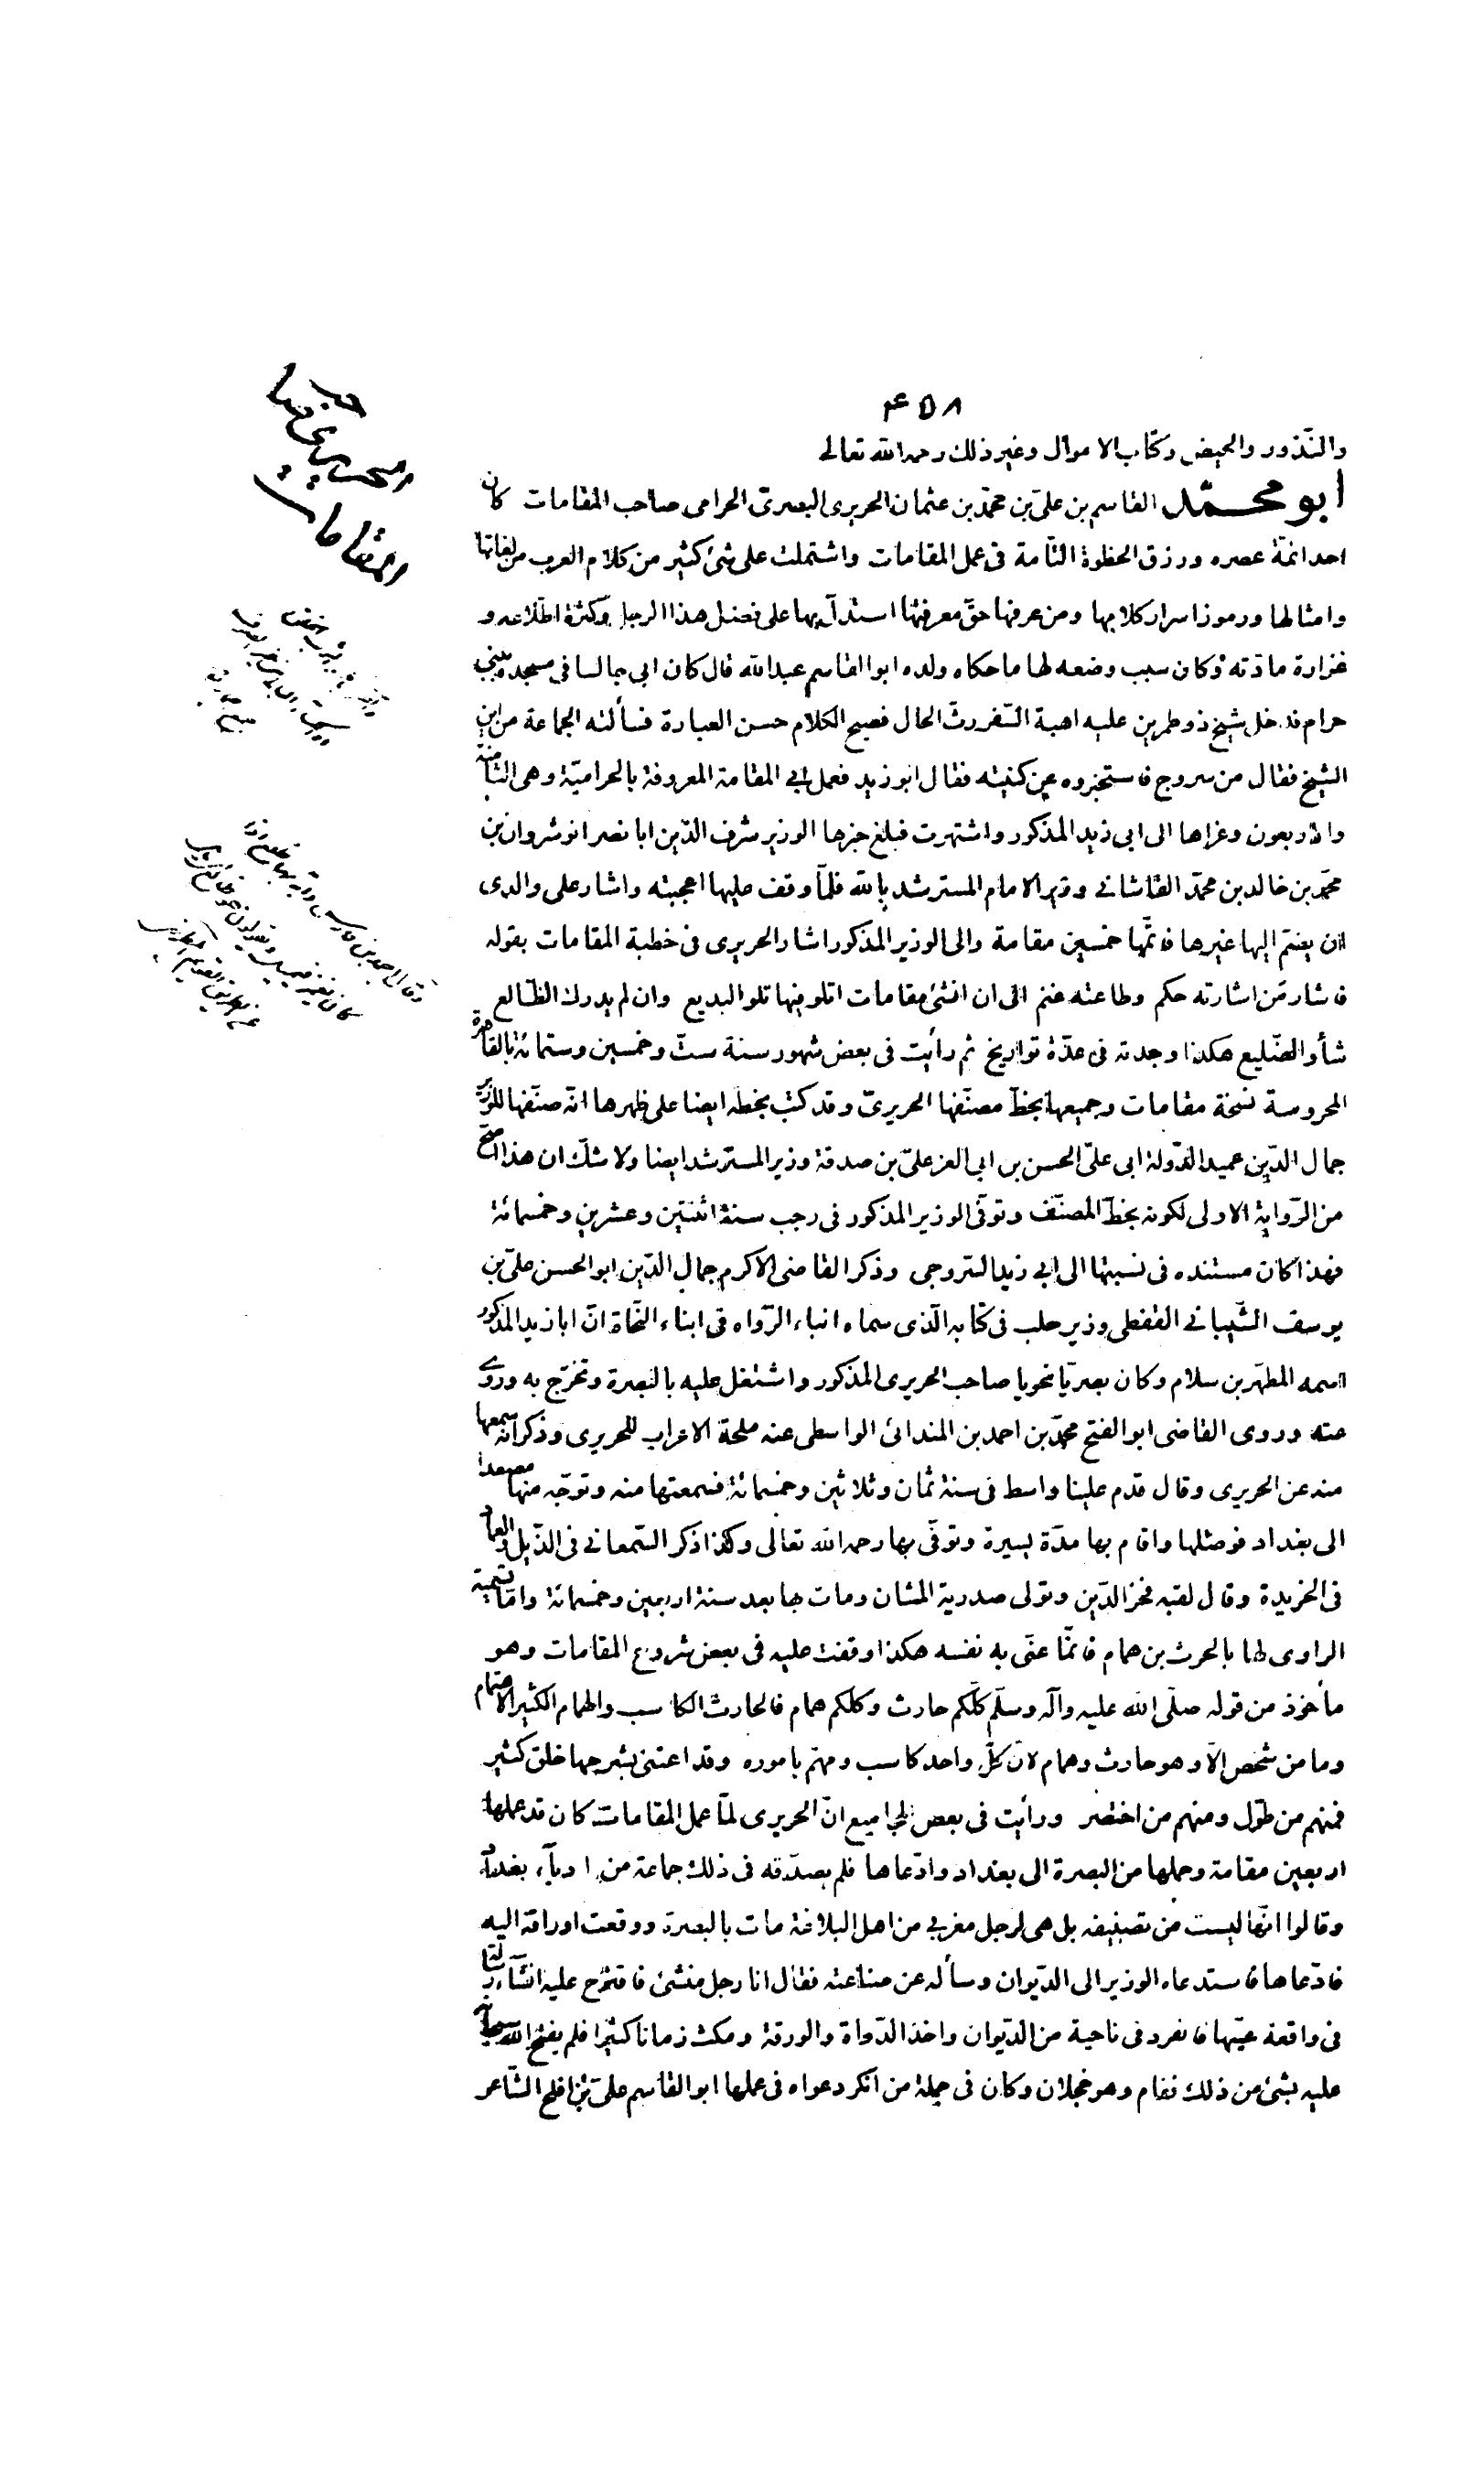 ۴۵۸
والنّذور والحيض وكتاب الاموال وغير ذلك رحمه الله تعالى
ابو محمّد القاسم بن علىّ بن محمّد بن عثمان الحريرى البصرىّ الحرامى صاحب المقامات كان
احد ائمّة عصره ورزق الحظوة التّامة فى عمل المقامات واشتملت على شئ كثير من كلام العرب من لغاتها
وامثالها ورموز اسرار كلامها ومن عرفها حقّ معرفتها استدلّ بها على فضل هذا الرجل وكثرة اطّلاعه و
غزارة مادّته وكان سبب وضعه لها ما حكاه ولده ابو القاسم عبد الله قال كان ابى جالسا فى مسجده ببنى
حرام فدخل شيخ ذو طمرين عليه اهبة السّفر رثّ الحال فصيح الكلام حسن العبارة فسألته الجماعة من اين
الشيخ فقال من سروج فاستخبروه عن كنيته فقال ابو زيد فعمل ابى المقامة المعروفة بالحراميّة وهى الثّامنة
والاربعون وعزاها الى ابى زيد المذكور واشتهرت فبلغ خبرها الوزير شرف الدّين ابا نصر انوشروان بن
محمّد بن خالد بن محمّد القاشانى وزير الامام المسترشد بالله فلمّا وقف عليها اعجبته واشار على والدى
ان يضمّ اليها غيرها فاتمّها خمسين مقامة والى الوزير المذكور اشار الحريرى فى خطبة المقامات بقوله
فاشار مَن اشارته حكم وطاعته غنم الى ان انشئ مقامات اتلو فيها تلو البديع وان لم يدرك الظّالع
شأو الضّليع هكذا وجدته فى عدّة تواريخ ثم رأيت فى بعض شهور سنة ستّ وخمسين وستمائة بالقاهرة
المحروسة نسخة مقامات وجميعها بخطّ مصنّفها الحريرىّ وقد كتب بخطّه ايضا على ظهرها انّه صنّفها للوزير
جمال الدّين عميد الدّولة ابى علىّ الحسن بن ابى العز علىّ بن صدقة وزير المسترشد ايضا ولا شكّ ان هذا اصحّ
من الرّواية الاولى لكونه بخطّ المصنّف وتوفّى الوزير المذكور فى رجب سنة اثنتين وعشرين وخمسمائة
فهذا كان مستنده فى نسبتها الى ابى زيد السّروجى وذكر القاضى الاكرم جمال الدّين ابو الحسن علىّ بن
يوسف الشّيبانى القفطى وزير حلب فى كتابه الّذى سماه انباء الرّواه فى ابناء النّحاة انّ ابا زيد المذكور
اسمه المطهّر بن سلام وكان بصريّا نحويا صاحب الحريرى المذكور واشتغل عليه بالبصرة وتخرّج به وروى
عنه وروى القاضى ابو الفتح محمّد بن احمد بن المندائى الواسطى عنه ملحة الاعراب للحريرى وذكر انّه سمعها
منه عن الحريرى وقال قدم علينا واسط فى سنة ثمان وثلاثين وخمسمائة فسمعتها منه وتوجّه منها مصعدا
الى بغداد فوصلها واقام بها مدّة يسيرة وتوفّى بها رحمه الله تعالى وكذا ذكر السّمعانى فى الذّيل والعماد
فى الخريدة وقال لقبه فخر الدّين وتولى صدرية المشان ومات بها بعد سنة اربعين وخمسمائة وامّا تسمية
الراوى لها بالحرث بن همام فانّما عنى به نفسه هكذا وقفت عليه فى بعض شروح المقامات وهو
مأخوذ من قوله صلّى الله عليه وآله وسلّم كلّكم حارث وكلكم همام فالحارث الكاسب والهمام الكثير الاهتمام
وما من شخص الّا وهو حارث وهمام لانّ كلّ واحد كاسب ومهتمّ باموره وقد اعتنى بشرحها خلق كثير
فمنهم من طوّل ومنهم من اختصر ورأيت فى بعض المجاميع انّ الحريرى لمّا عمل المقامات كان قد عملها
اربعين مقامة وحملها من البصرة الى بغداد وادّعاها فلم يصدّقه فى ذلك جماعة من ادباء بغداد
وقالوا انّها ليست من تصنيفه بل هى لرجل مغربى من اهل البلاغة مات بالبصرة ووقعت اوراقه اليه
فادّعاها فاستدعاه الوزير الى الدّيوان وسأله عن صناعته فقال انا رجل منشئ فاقترح عليه انشاء رسالة
فى واقعة عيّنها فانفرد فى ناحية من الدّيوان واخذ الدّواة والورقة ومكث زمانا كثيرا فلم يفتح الله سبحانه
عليه بشئ من ذلك فقام وهو خجلان وكان فى جملة من انكر دعواه فى عملها ابو القاسم علىّ بن افلح الشّاعر
الحريرى صاحب
المقامات